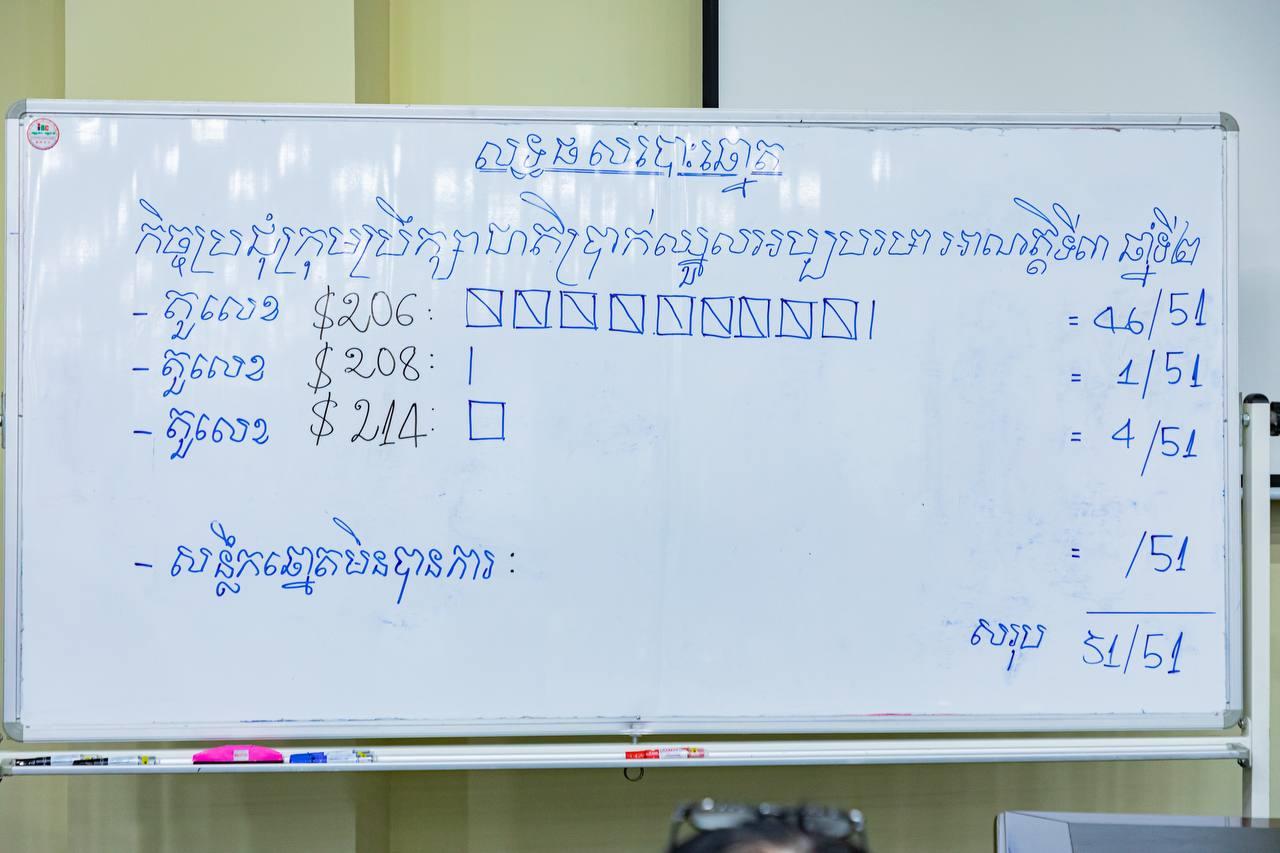 លទ្ធផលបោះឆ្នោត
កិច្ចប្រជុំក្រុមប្រឹក្សាជាតិប្រាក់ឈ្នួលអប្បបរមា អាណត្តិទី៣ ឆ្នាំទី២
- តួលេខ $206: = 46/51
- តួលេខ $208: = 1/51
- តួលេខ $214: = 4/51
- សន្លឹកឆ្នោតមិនបានការ : = /51
សរុប 51/51